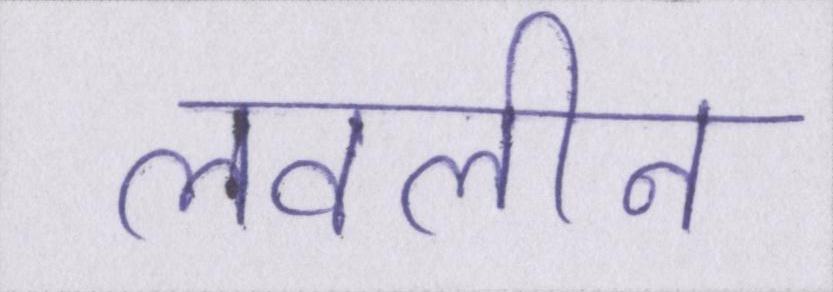 लवलीन